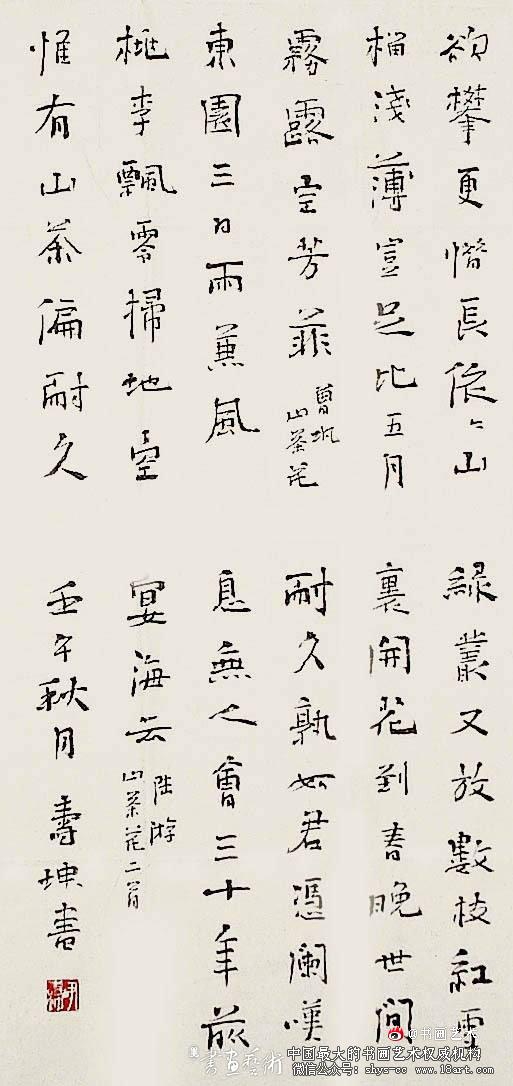 欲攀更惜長依〻山
榴淺薄豈足比五月
霧露空芳菲
曾鞏
山茶花
東園三日雨兼風
桃李飄零掃地空
惟有山茶偏耐久
綠叢又放數枝紅雪
裏開花到春晚世間
耐久孰如君憑闌嘆
息無人會三十年前
宴海云
陸游
山茶花二首
壬午秋月壽坤書
@书画艺术
書畫藝術
中国最大的书画艺术权威机构
微信公众号：shys-cc 官网：www.18art.com